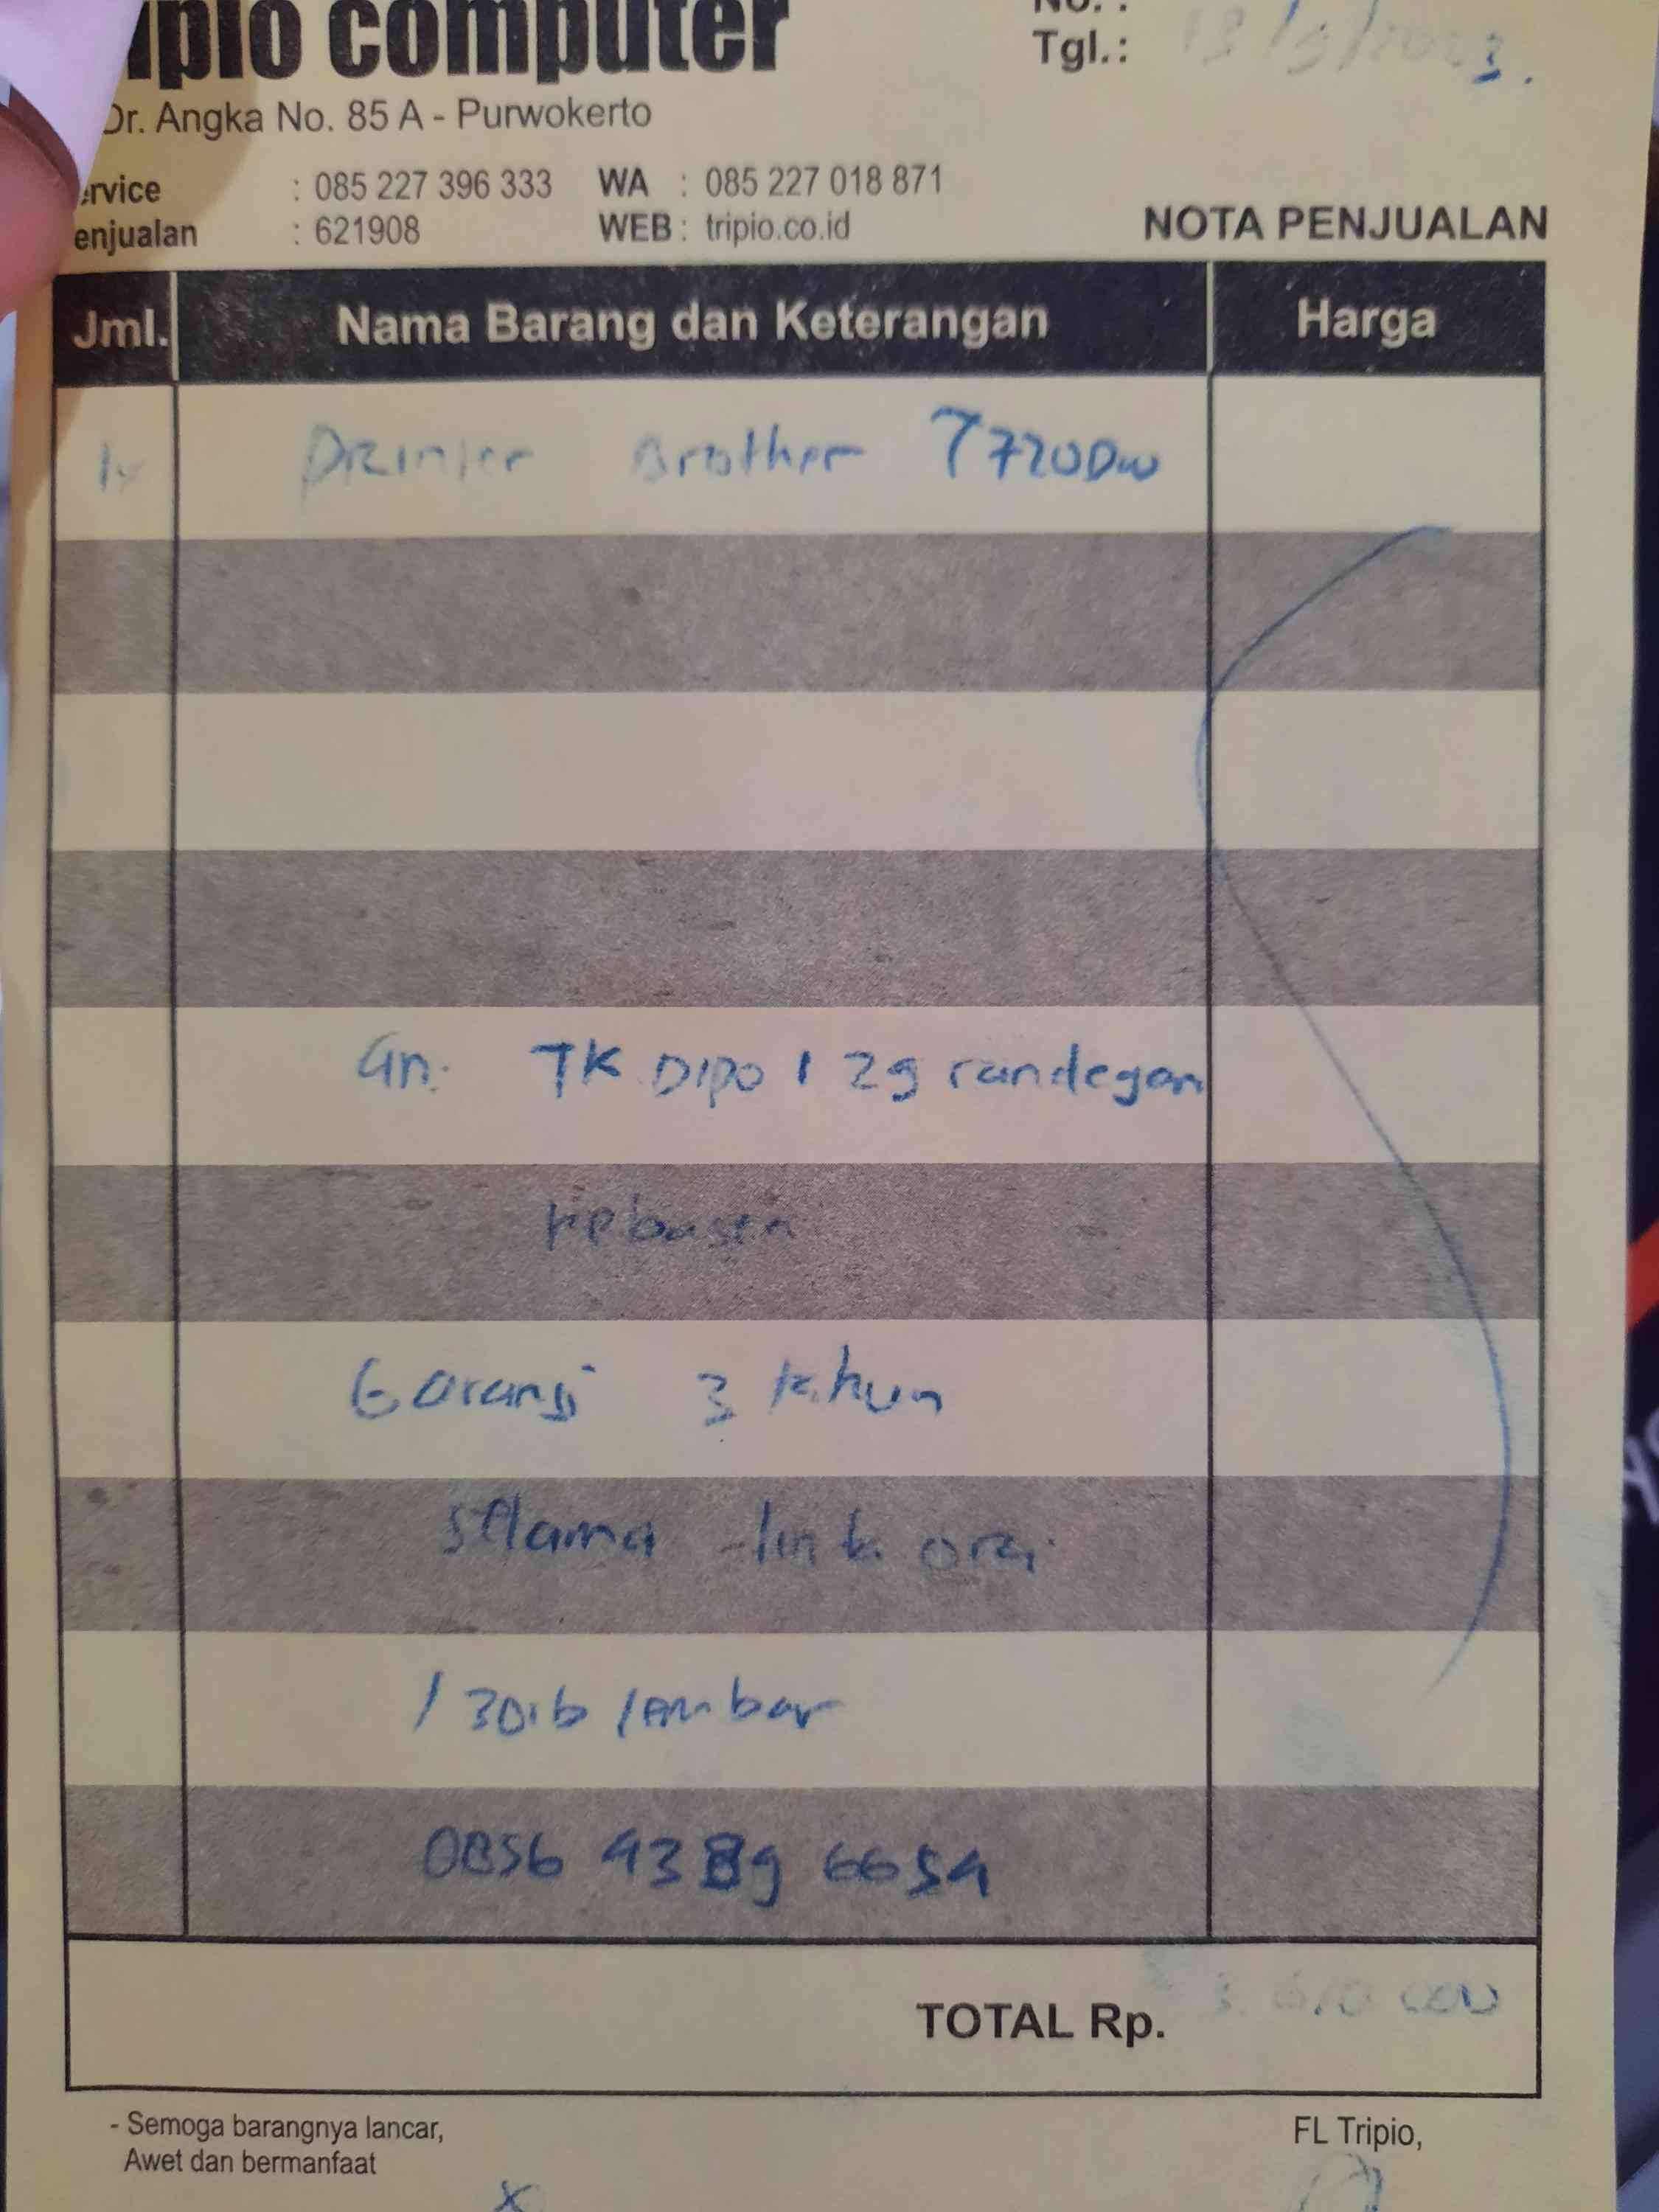 computer
No. :
Tgl.: 13/9/2023.
Dr. Angka No. 85 A - Purwokerto
: 085 227 396 333 WA : 085 227 018 871
: 621908 WEB : tripio.co.id
NOTA PENJUALAN
Jml. Nama Barang dan Keterangan Harga
1x Printer Brother T720DW
an. TK DIPO 1 29 randegan
kebasen
Garansi 3 tahun
selama tinta ori
/ 30rb lembar
0856 4389 6654
TOTAL Rp. 3.610.000
- Semoga barangnya lancar,
Awet dan bermanfaat
FL Tripio,